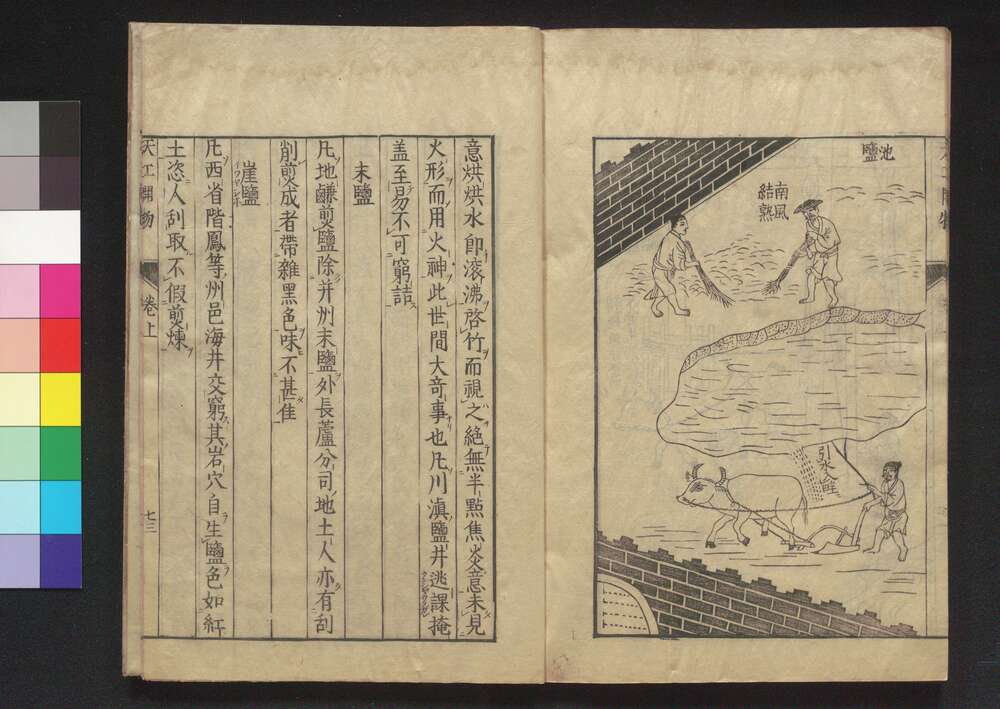 池鹽
南風
結熟
引水入畦
意烘烘水即滾沸啓竹而視之絶無半點焦炎意未見
火形而用火神此世間大奇事也凡川滇鹽井逃課掩
盖至易不可窮詰
末鹽
凡地鹻煎鹽除并州末鹽外長蘆分司地土人亦有刮
削煎成者帶雜黒色味不甚佳
崖鹽
凡西省階鳳等州邑海井交窮其岩穴自生鹽色如紅
土恣人刮取不假煎煉
天工開物
卷上
七三